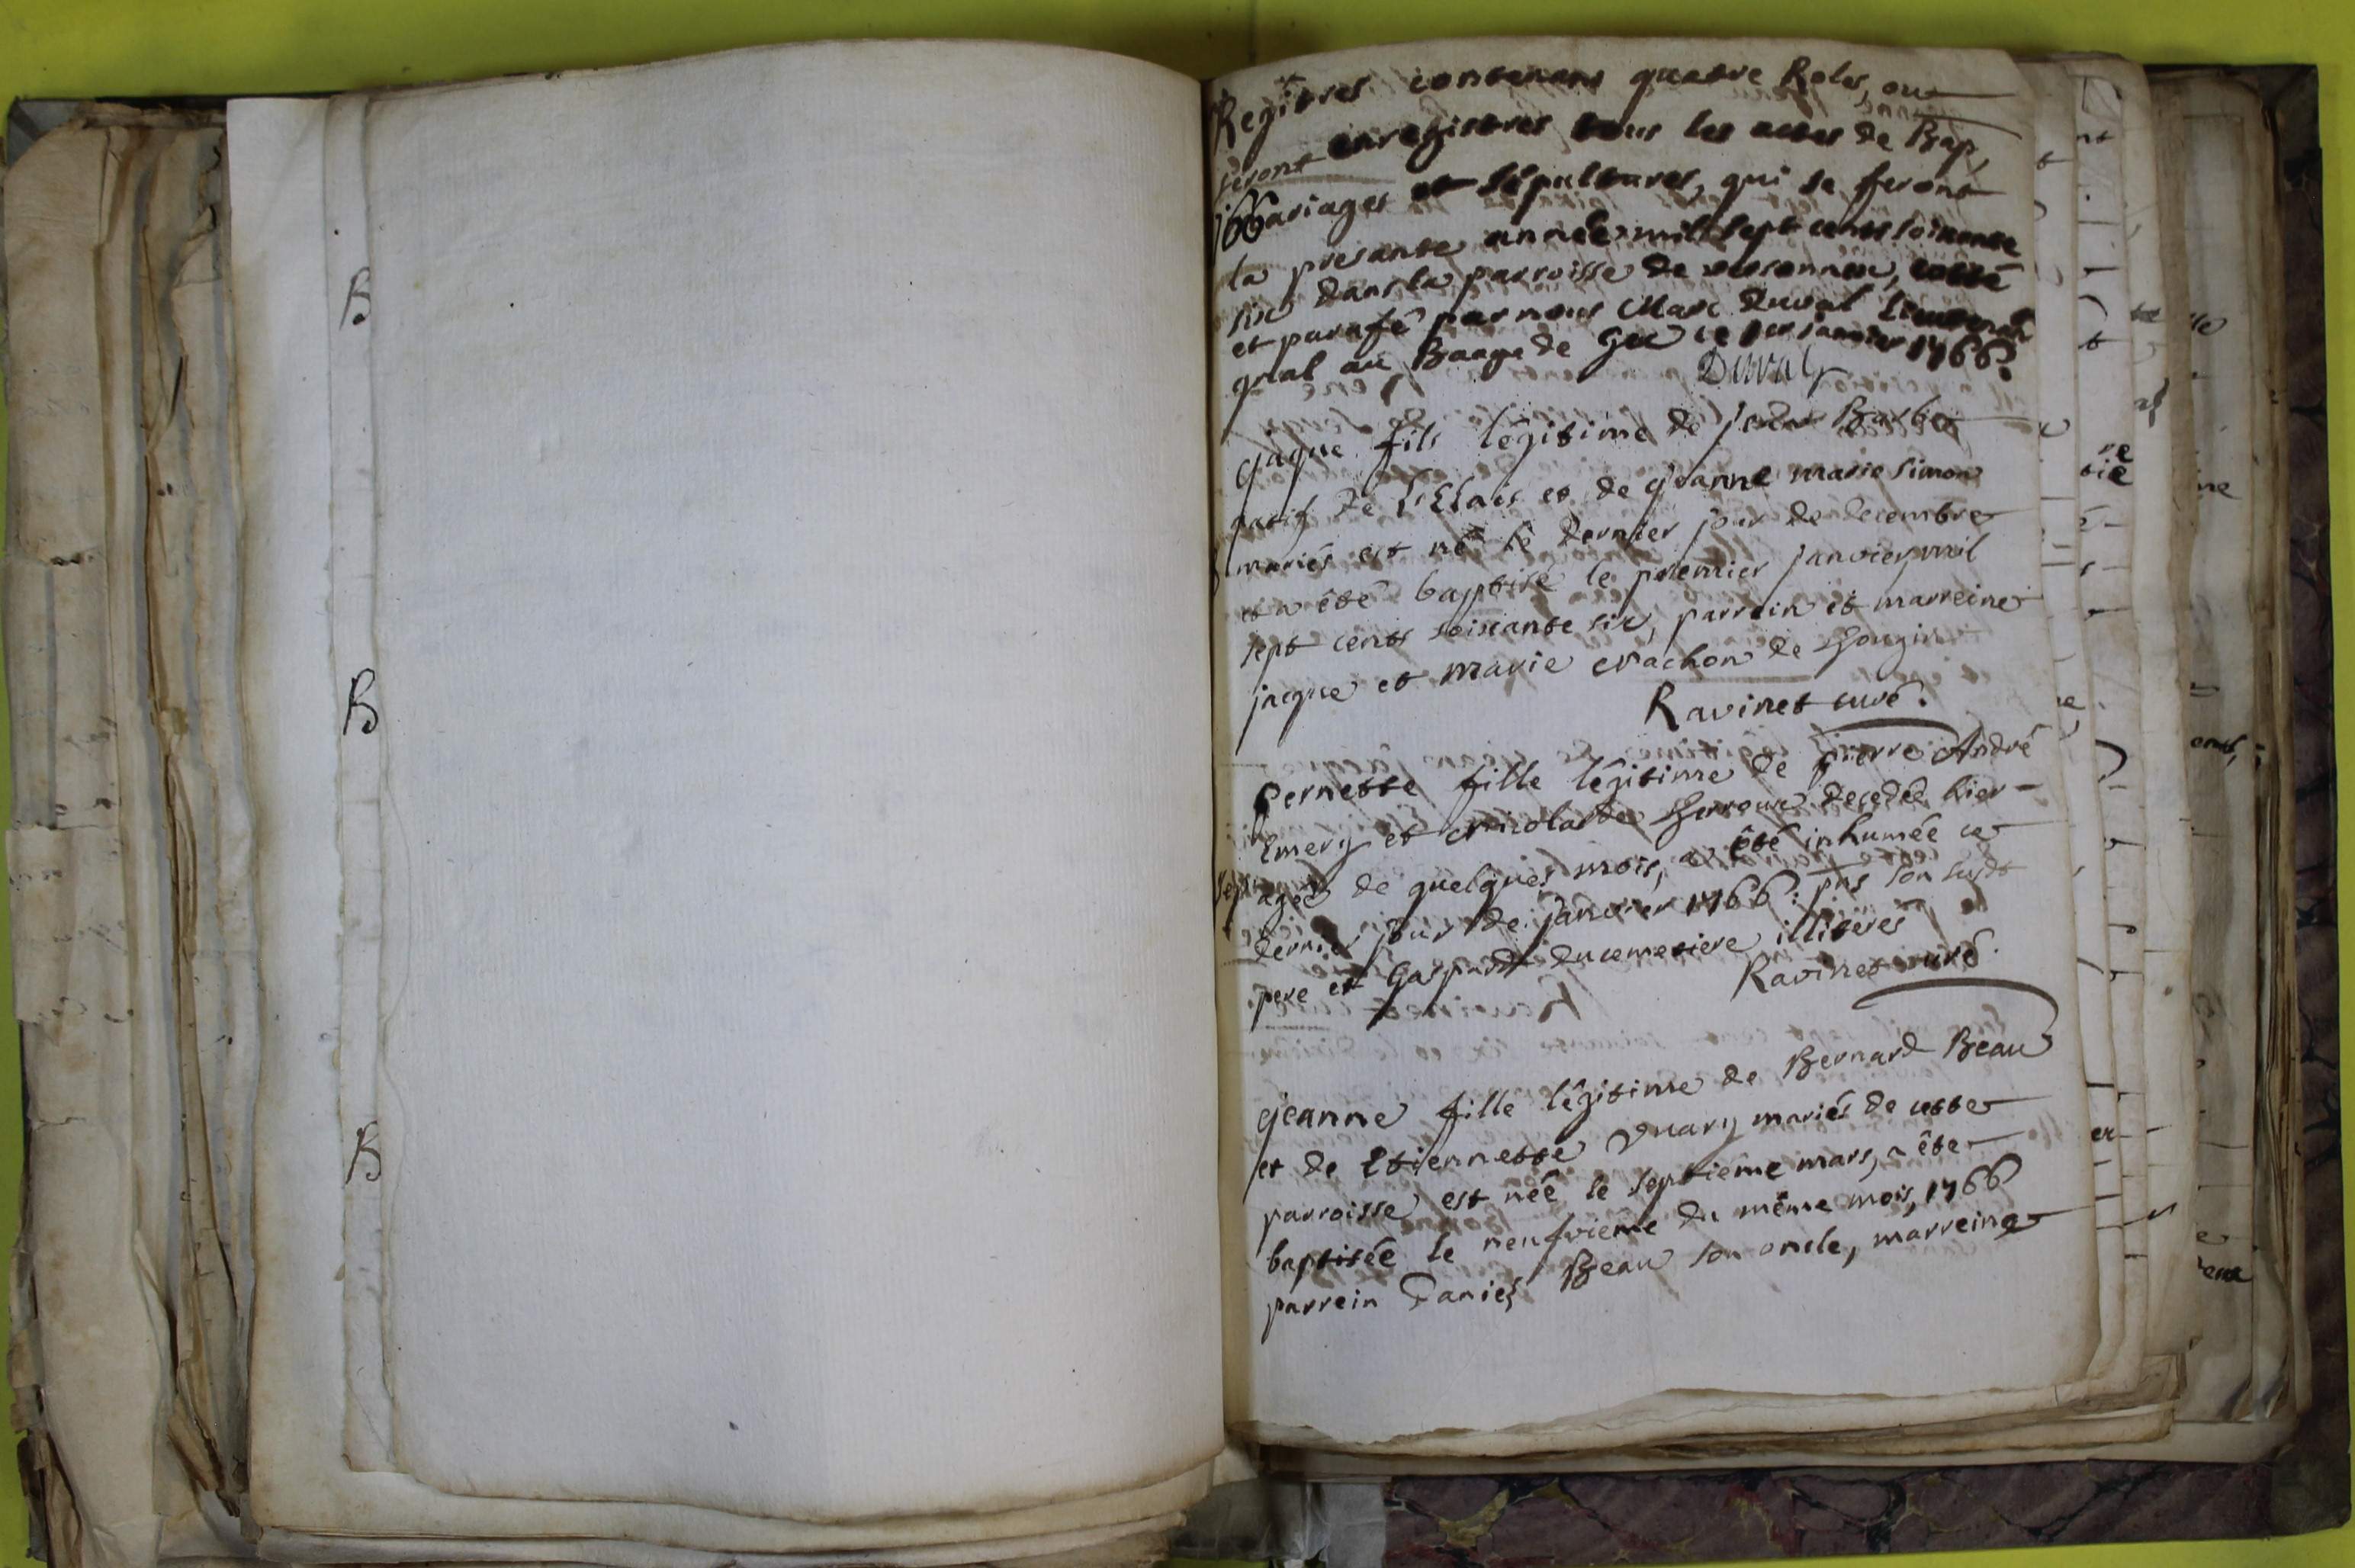 B
B
B
Regîtres contenans quatre Roles, ou
seront enregistres tous les actes de Bap,
Mariages et sépultures, qui se feront
la presante année mil sept cents soixante
six dans la parroisse de versonnex, cotté
et parafé par nous Marc Duval Lieutenant
gnal au Baage de Gex ce 1er janvier 1766.
Duval
jaque fils légitime de Barbe
natif de et de jeanne marie simon
mariés est né le dernier jour de decembre
et a êté baptisé le premier janvier mil
sept cents soixante six, parrein et marreine
jaque et marie de
Ravinet curé.
Pernette fille légitime de pierre André
Emery et decedée hier
agée de quelques mois, a êté inhumée ce
dernier jour de janvier 1766: pns son susdt
pere et Gaspard ducemetiere illiteres
Ravinet curé.
jeanne fille légitime de Bernard Beau
et de Etiennette mariés de cette
parroisse est née le septieme mars, a êté
baptisée le neufvieme du même mois, 1766
parrein Daniel Beau son oncle, marreine